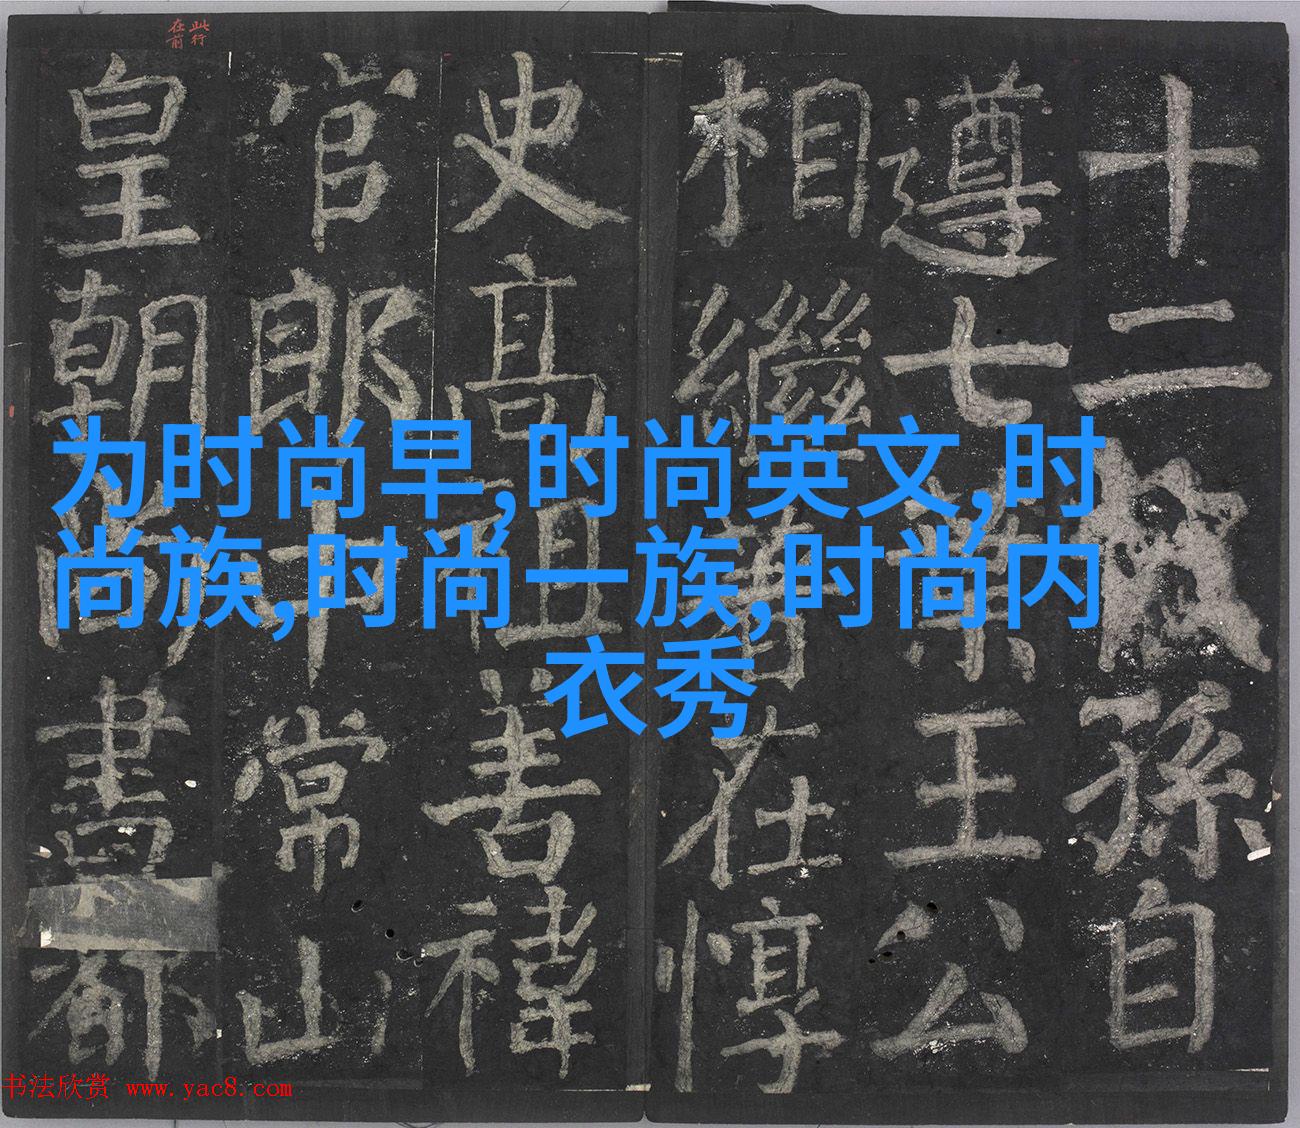 为时尚早,时尚英文,时
尚族,时尚一族,时尚内
衣秀
十二 孫自
遵七葉王公
相繼 在惇
史高祖善禕
官郎十常山
皇朝尚書都
此行
在前
书法欣赏 www.yac8.com